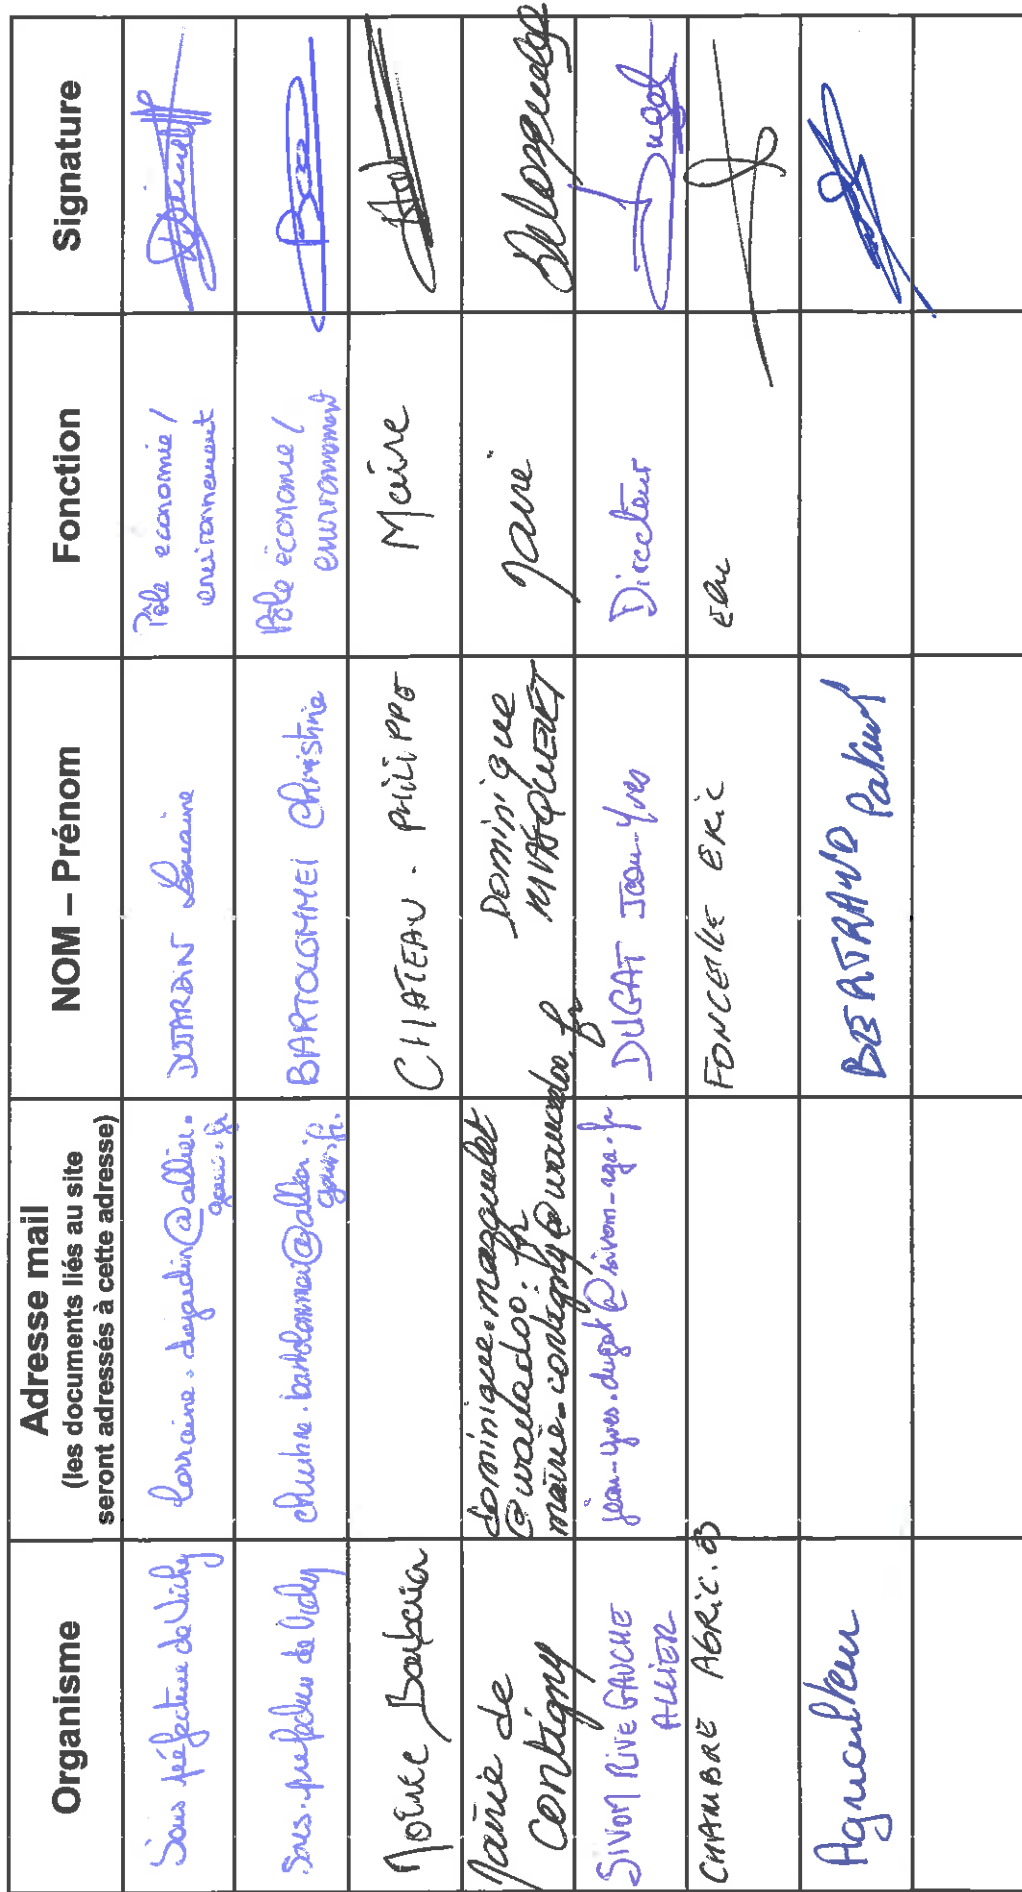 Organisme
Adresse mail
(les documents liés au site
seront adressés à cette adresse)
NOM – Prénom
Fonction
Signature
Sous préfecture de Vichy
lorraine.dujardin@allier.
gouv.fr
DUJARDIN Lorraine
Pôle economie /
environnement
Sous-prefecture de Vichy
christine.bartolommei@allier.
gouv.fr.
BARTOLOMMEI Christine
Pôle économie /
environnement
CHATEAU. PHILIPPE
Maire
Mairie de
Contigny
dominique.masquelet
@wanadoo.fr
mairie-contigny@wanadoo.fr
Dominique
MASQUELET
Maire
SIVOM RIVE GAUCHE
ALLIER
jean-yves.dugat@sivom-rga.fr
DUGAT Jean-Yves
Directeur
Dugat
CHAMBRE AGRIC. 03
ERIC
Elu
Agriculteur
BERTRAND Patrick